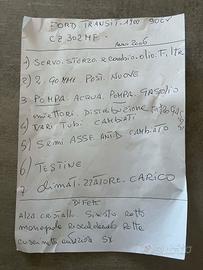 FORD TRANSIT. 1900 90CV
CZ 302 MF. ANNO 2006
1) SERVO. STERZO. e cambio. olio. F. ltri
2) 2. GOMME POST. NUOVE
3 POMPA. ACQUA. POMPA. GASOLIO
INIETTORI. DISTRIBUZIONE
4) VARI TUBI. CAMBIATI
5) SEMI ASSE. CAMBIATO
6) TESTINE
7 CARICO
DIFETTI
ALZA CRISTALLO SINISTRO ROTTO
MANOPOLE RISCALDAMENTO ROTTE
CUSCINETTO SX